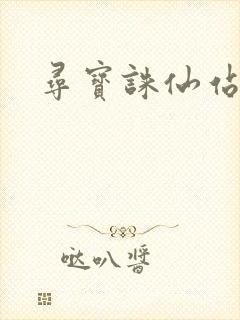 尋寶誅仙佔
哒叭醬